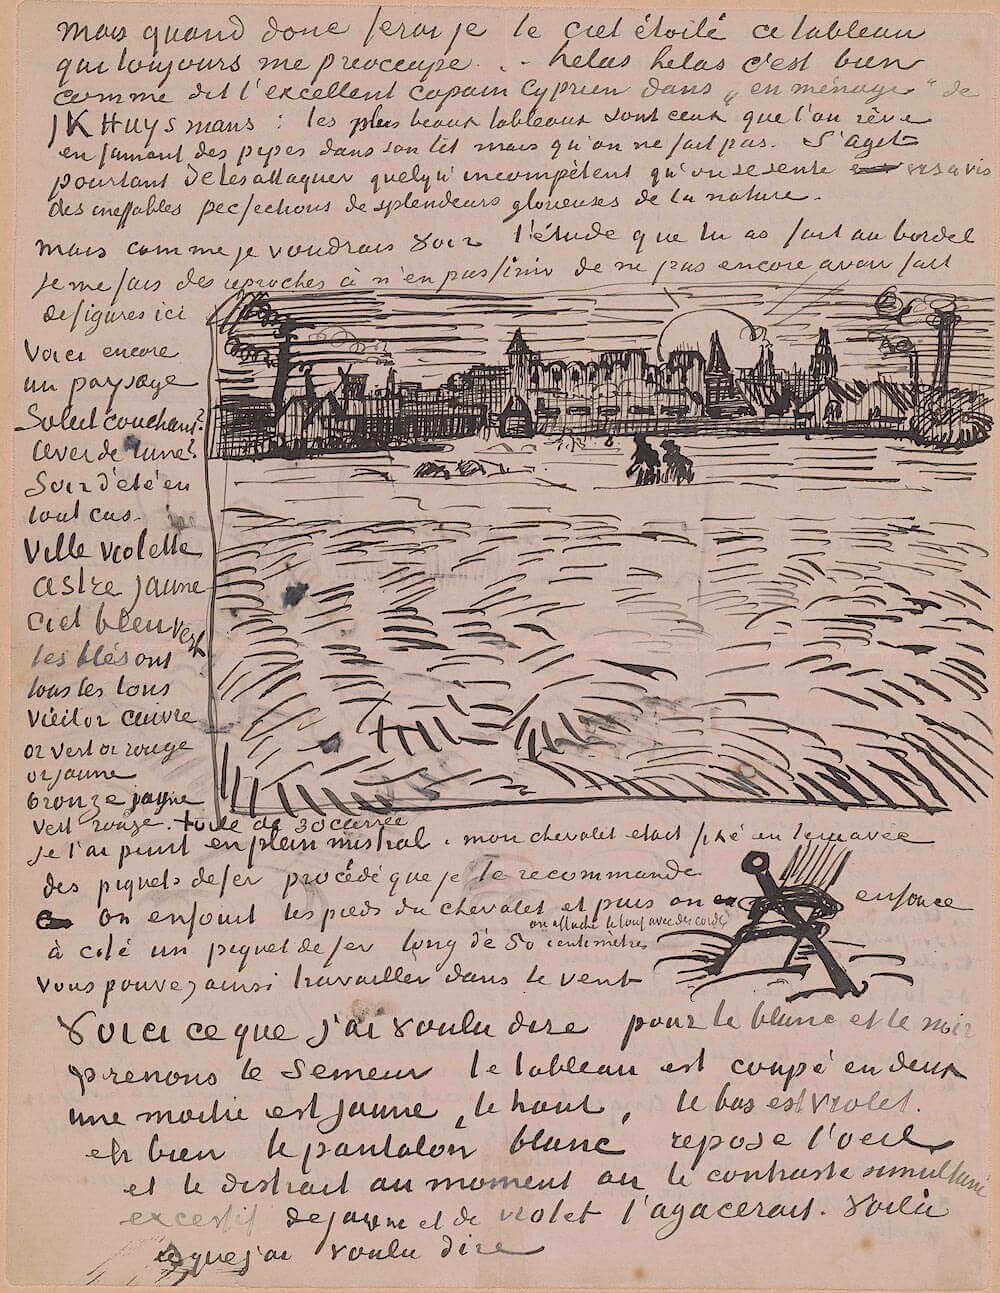 mais quand donc ferai je le ciel étoilé ce tableau
qui toujours me préoccupe . . helas helas c'est bien
comme dit l'excellent copain Cyprien dans „en ménage" de
JK Huysmans : les plus beaux tableaux sont ceux que l'on rêve
en fumant des pipes dans son lit mais qu'on ne fait pas. S'agit
pourtant de les attaquer quelqu'incompétent qu'on se sente vis a vis
des ineffables perfections de splendeurs glorieuses de la nature.
mais comme je voudrais voir l'étude que tu as fait au bordel
je me fais des reproches à n'en pas finir de ne pas encore avoir fait
de figures ici
Voici encore
un paysage
Soleil couchant?
lever de lune?
Soir d'été en
tout cas.
Ville violette
astre jaune
ciel bleu vert
les blés ont
tous les tons
vieil or cuivre
or vert or rouge
or jaune
bronze jaune
vert rouge. toile de 30 carrée
je l'ai peint en plein mistral. mon chevalet etait fixé en terre avec
des piquets de fer procédé que je te recommande
on enfouit les pieds du chevalet et puis on enfonce
à côté un piquet de fer long de 50 centimètres
on attache le tout avec des cordes
vous pouvez ainsi travailler dans le vent
Voici ce que j'ai voulu dire pour le blanc et le noir
prenons le Semeur le tableau est coupé en deux
une moitié est jaune, le haut, le bas est violet.
eh bien le pantalon blanc repose l'oeil
et le distrait au moment ou le contraste simultané
excessif de jaune et de violet l'agacerait. Voilà
ce que j'ai voulu dire